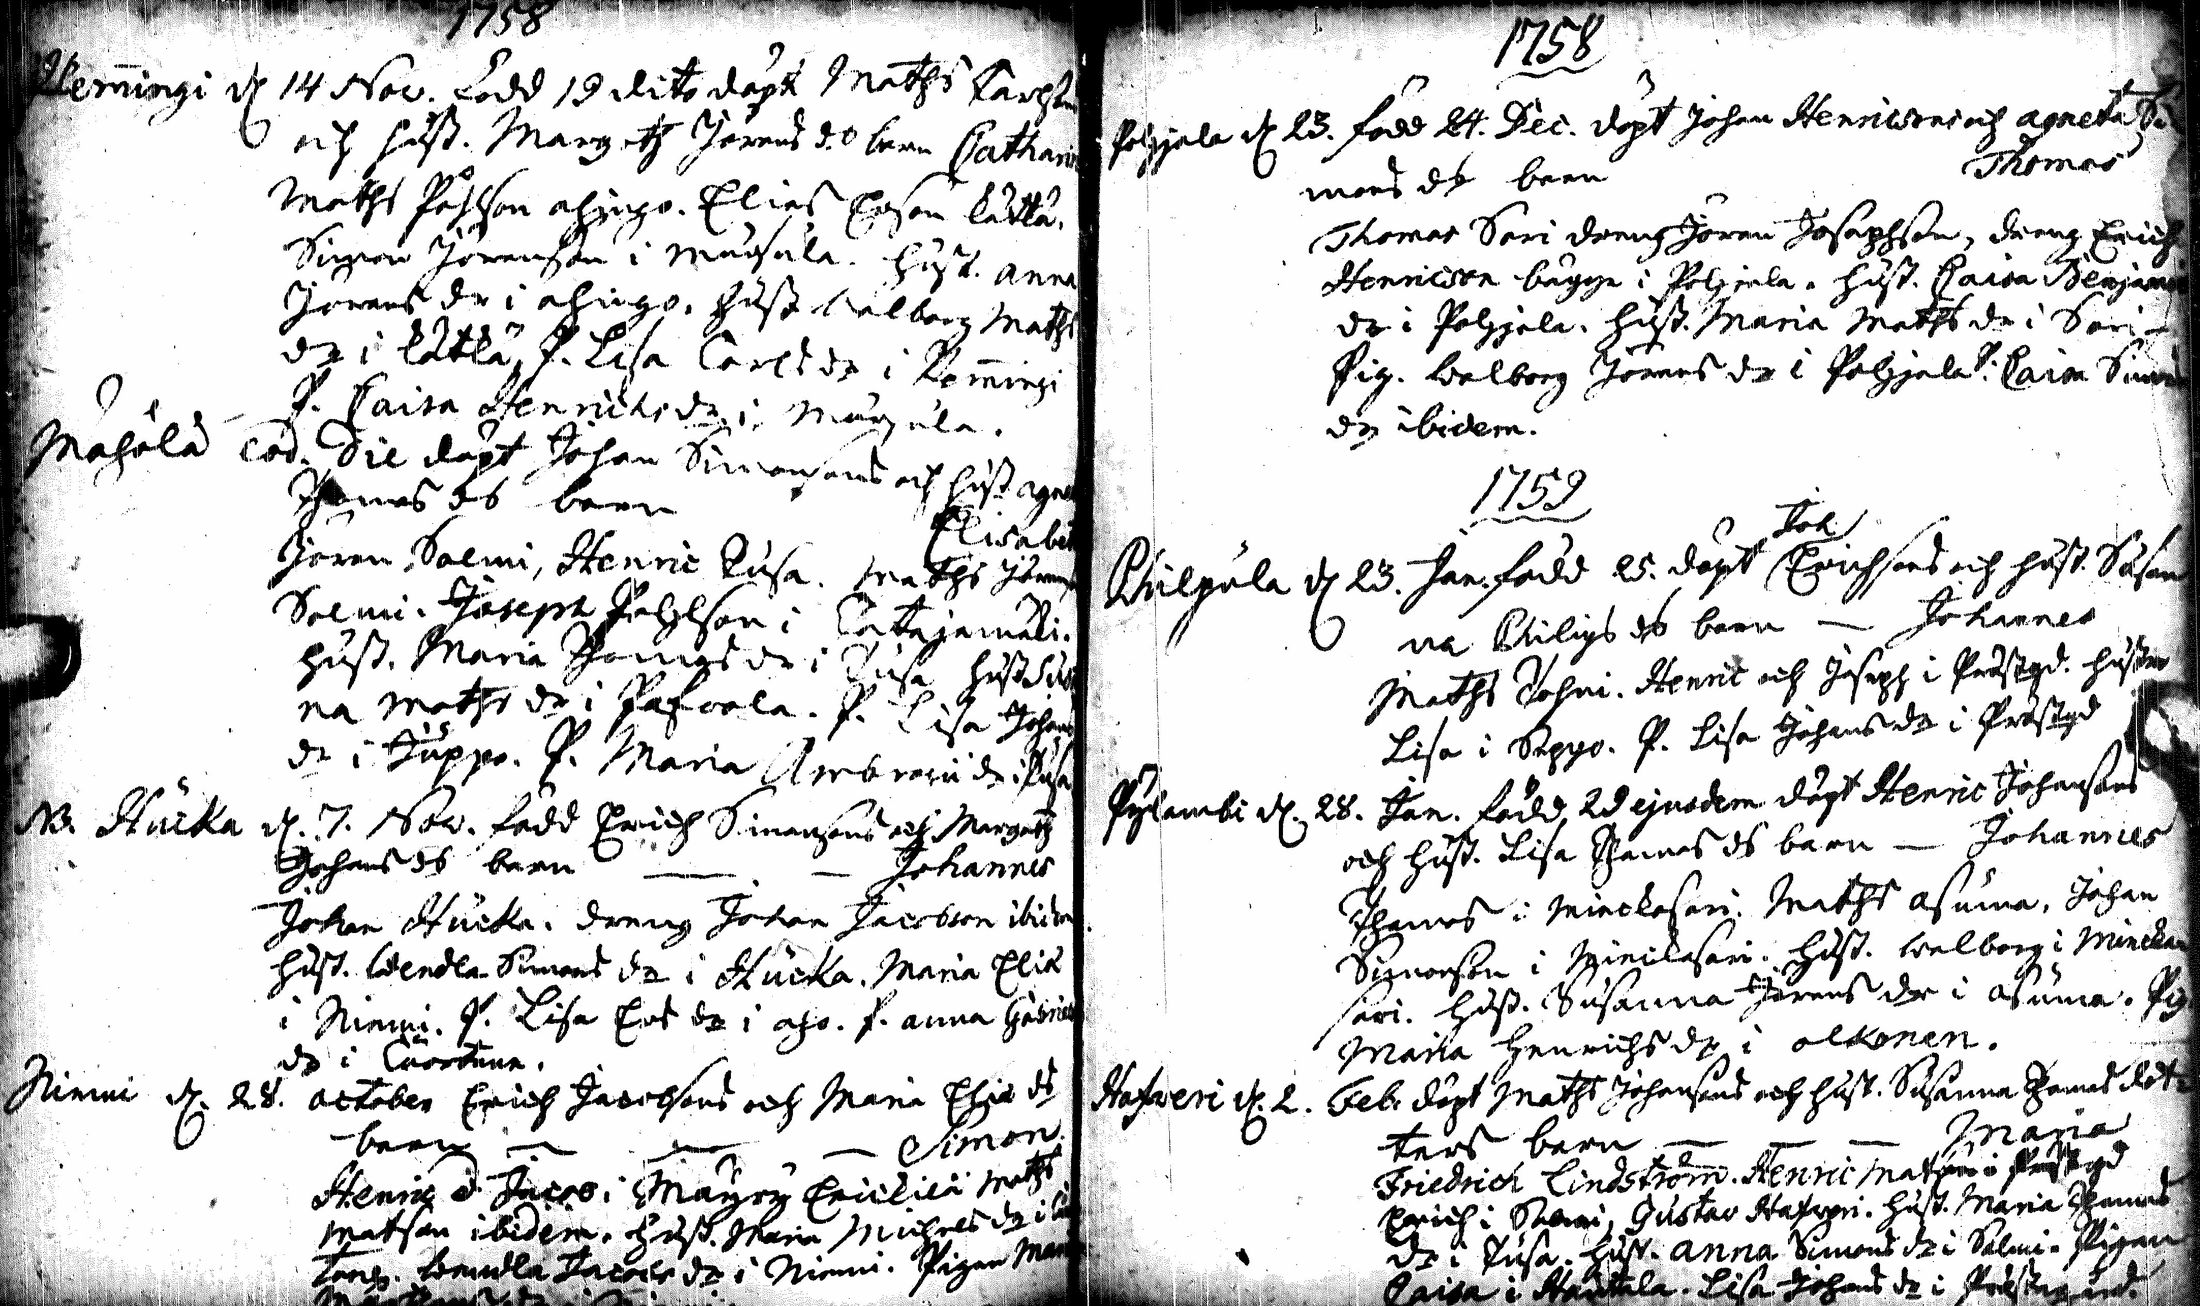 1758
Remingi d. 14 Nov. född 19 dito döpt Maths Carlsons
och hust. Margeth Jörens d:o barn Catharina
Maths Påhlson ahingo. Elias Ersson
Simon Jörenson i Mugula. hust. Anna
Jörens dr i ahingo. hust Walborg Maths
dr i P. Lisa Carls dr i Remingi
P. Caisa Henrichs dr i Mugula.
Mahölä eod. die döpt Johan Simonsons och hust agne
Thomas ds barn
Elisabet
Jören Salmi, Henric Pusa. Maths Jörens
Salmi. Joseph Pahlson i Catajamäki.
hust. Maria Thomas dr i Pusa hust Su
na Maths dr i Pafvola. P. Lisa Johans
dr i Juppo. P. Maria Ambrosii dr i Pusa
NB. Hucka d. 7. Nov. född Erich Simonsons och Margeth
Johans ds barn — — Johannes
Johan Hucka. dreng Johan Jacobson ibidem
hust. Wendla Simons dr i Hucka. Maria Elia
i Niemi. P. Lisa Ers dr i aho. P. Anna Gabriels
dr i
Niemi d. 28. October Erich Jacobsons och Maria Elia ds
barn — — — Simon
Henric & Jacob i Maths
Matson ibidem. hust. Maria Michels dr i
Wendla Jacobs dr i Niemi. Pigan Maria
1758
Pohjola d. 23. född 24. Dec. döpt Johan Henricsons och Agneta Si
mons ds barn Thomas
Thomas Sari dreng Jören Josephson, dreng Erich
Henricson bägge i Pohjola. hust. Caisa Benjamins
dr i Pohjola. hust. Maria Maths dr i Sari
Pig. Walborg Jörens dr i Pohjola P. Caisa Simons
dr ibidem.
1759
Joh
Philpula d. 23. Jan. född 25. döpt Erichsons och hust. Susan
na Philips ds barn — Johannes
Maths Tohni. Henric och Joseph i Prästgd. hustro
Lisa i Seppo. P. Lisa Johans dr i Prästgd
Pylambi d. 28. Jan. född 29 ejusdem döpt Henric Johansons
och hust. Lisa Thomas ds barn — Johannes
Thomas i Minckasari. Maths Asuma. Johan
Simonson i Minckasari. hust. Walborg i Mincka
sari. hust. Susanna Jörens dr i Asuma. Pig.
Maria Henrichs dr i Olkonen.
Hafveri d. 2. Feb. döpt Maths Johansons och hust. Susanna Thomas döt=
ters barn — — — Maria
Friedrich Lindström. Henric Matson i Prästgd
Erich i Salmi, Gustav Hafveri. hust. Maria Thomas
dr i Pusa. hust. Anna Simons dr i Salmi. Pigan
Caisa i Hautala. Lisa Johans dr i Prästegård.